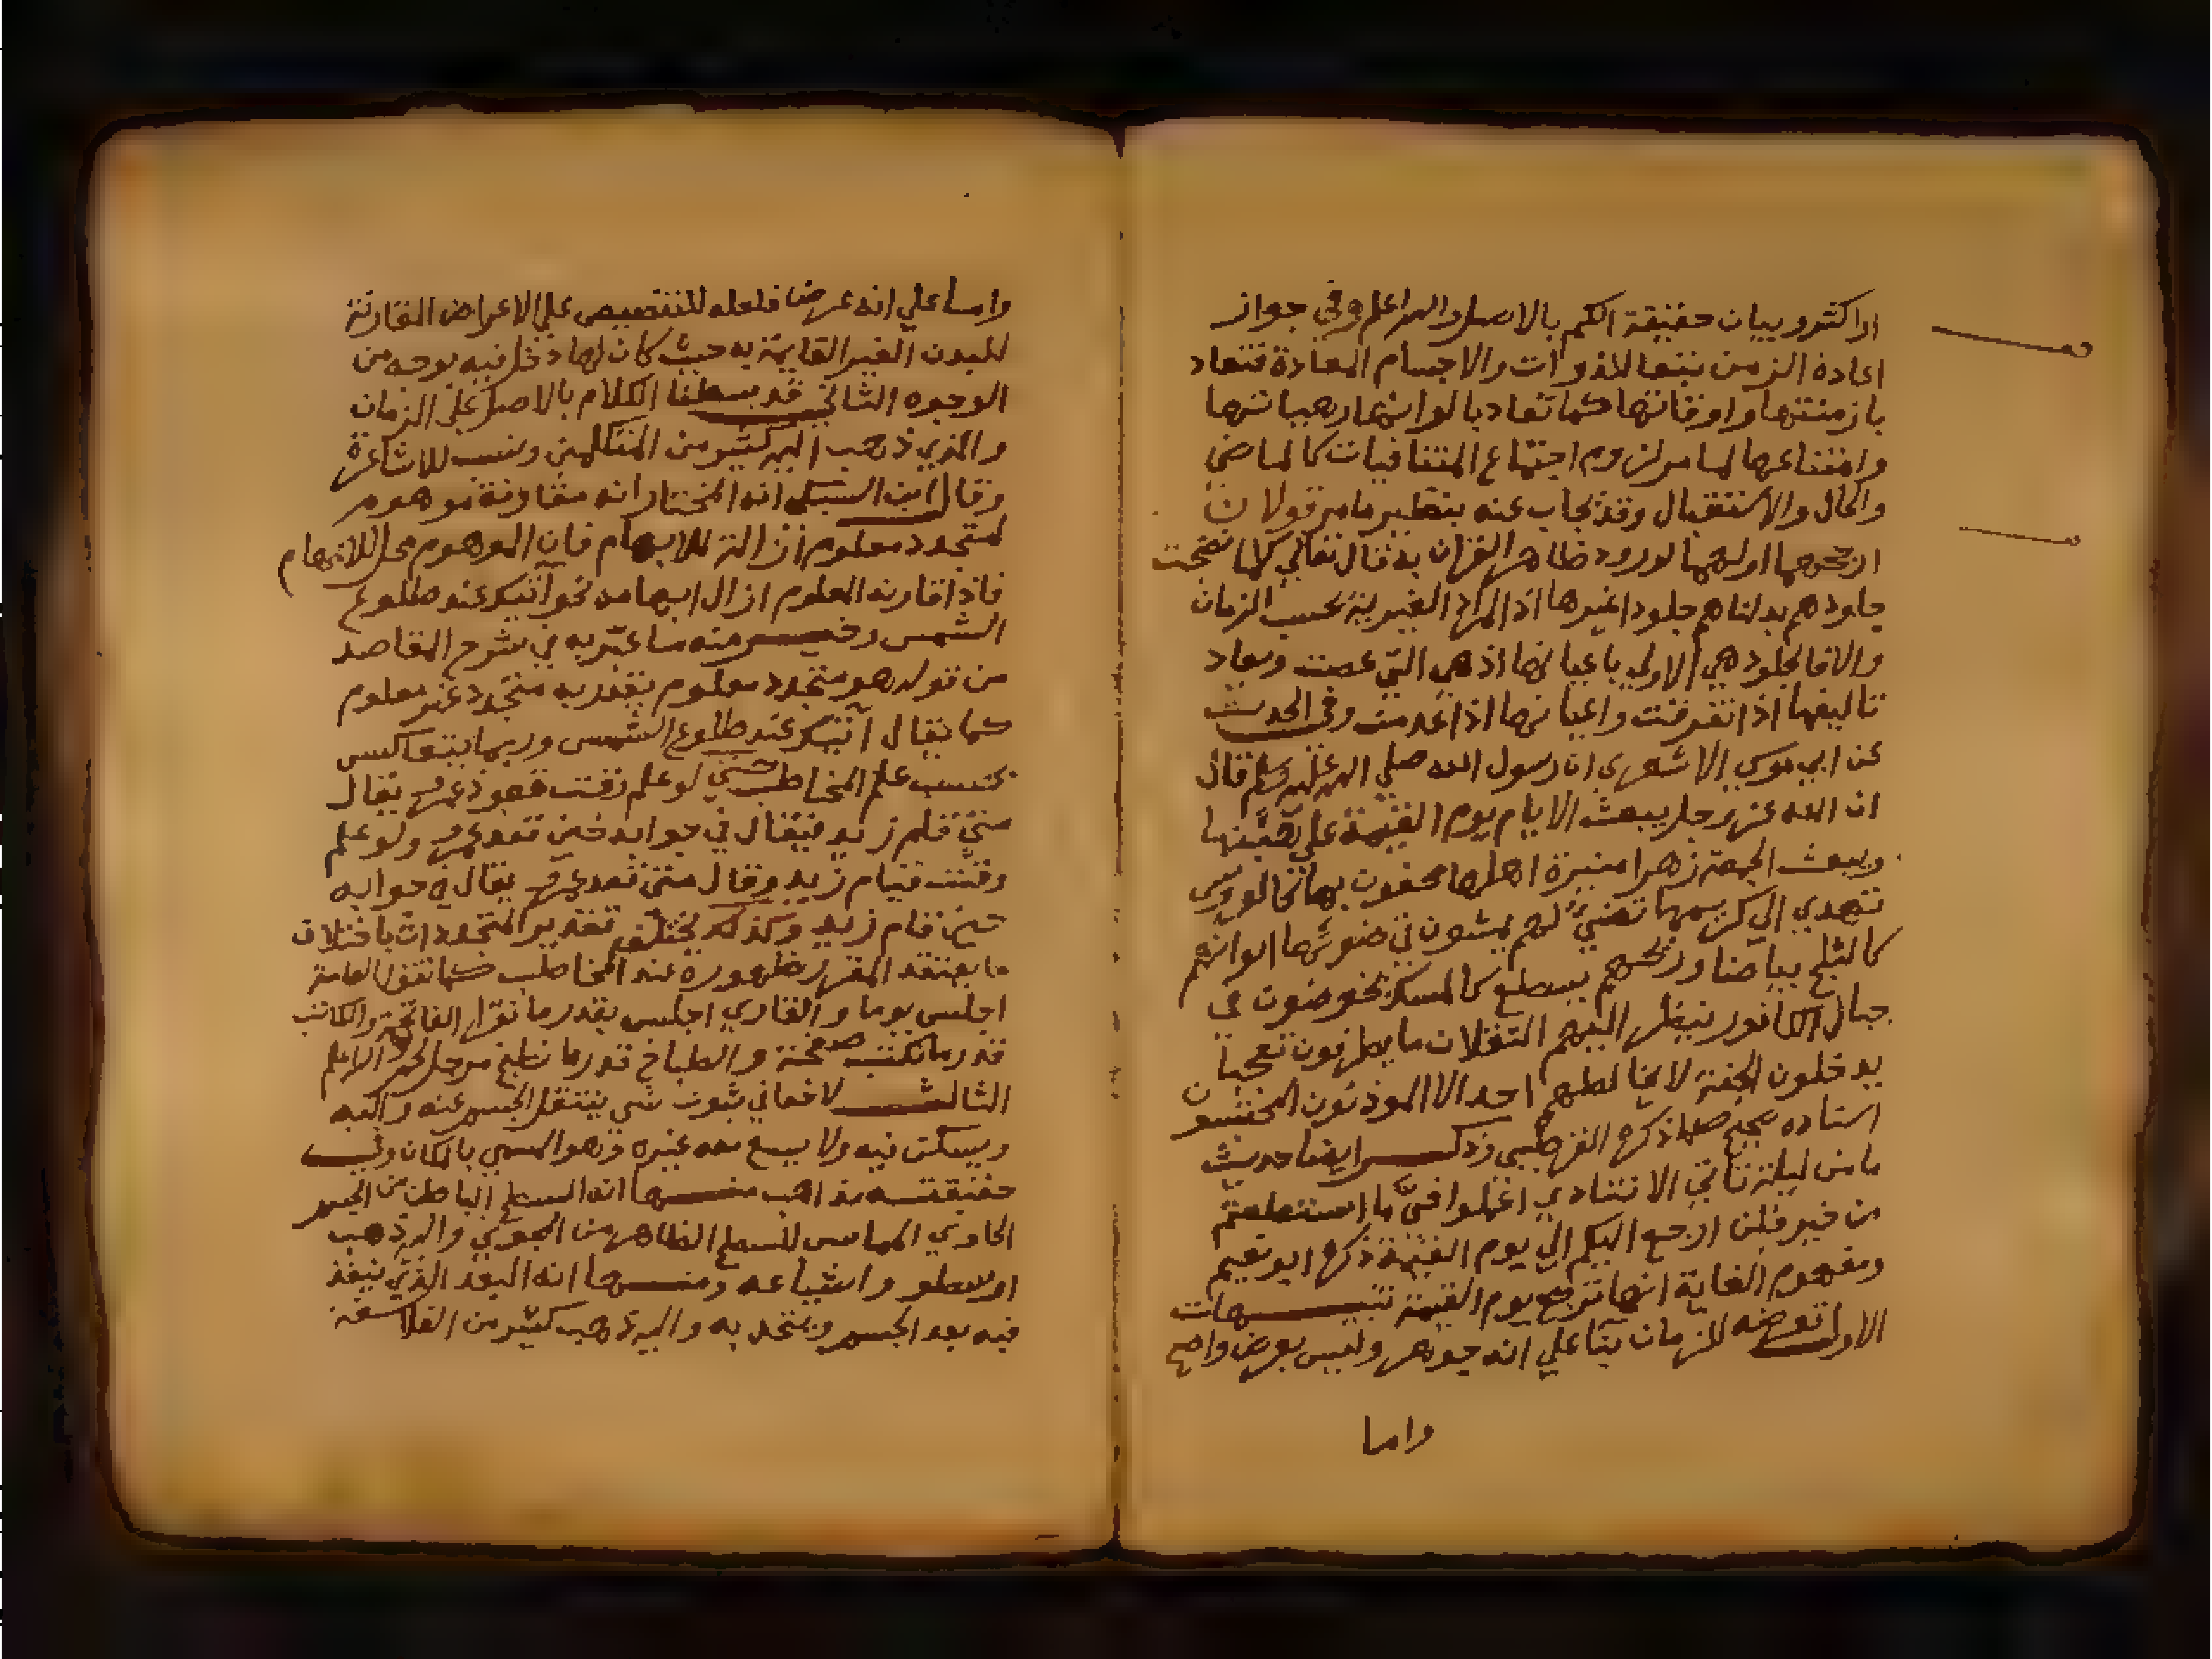 او اكثر وبيان حقيقة الكم بالاصل والله اعلم وفي جواز
اعادة الزمن تبعا للذوات والاجسام المعادة فتعاد
بازمنتها واوقاتها كما تعاد بالوانها وهيباتها
وامتناعها لما مر لزوم اجتماع المتنافيات كالماضي
والحال والاستقبال وقد يجاب عنه بنظير ما مر قولان
ارجحهما اولهما لورود ظاهر القران به قال تعالي كلما نضجت
جلودهم بدلناهم جلودا غيرها اذ المراد الغيرية بحسب الزمان
والا فالجلود هي الاولي باعيانها اذ هي التي عصت وتعاد
تاليفها اذا تفرقت واعيانها اذا عدمت وفي الحديث
عن ابي موسي الاشعري ان رسول الله صلي الله عليه وسلم قال
ان الله عز وجل يبعث الايام يوم القيمة علي هيئتها
ويبعث الجمعة زهرا منيرة اهلها محفون بها كالعروس
تهدي الي كريمها تضيء لهم يمشون في ضوئها الوانهم
كالثلج بياضا وريحهم يسطع كالمسك يخوضون في
جبال الكافور ينظر اليهم الثقلان ما يطرفون تعجبا
يدخلون الجنة لا يخالطهم احد الا الموذنون المحتسبون
اسناده صحيح ذكره القرطبي وذكر ايضا حديث
ما من ليلة تاتي الا تنادي اعملوا فيَّ ما استطعتم
من خير فلن ارجع اليكم الي يوم القيمة ذكره ابو نعيم
ومفهوم الغاية انها ترجع يوم القيمة تنبيهات
الاول تعرضه للزمان بنا علي انه جوهر وليس بعرض واضح
واما
واما علي انه عرض فلعله للتنصيص علي الاعراض المقارنة
للبدن الغير القايمة به حيث كان لها دخل فيه بوجه من
الوجوه الثاني قد بسطنا الكلام بالاصل علي الزمان
والذي ذهب اليه كثير من المتكلمين ونسب للاشاعرة
وقال ابن السبكي انه المختار انه مقارنة موهوم
لمتجدد معلوم ازالة للابهام فان الموهوم محل للابهام
فاذا قارنه المعلوم ازال ابهامه نحو اتيك عند طلوع
الشمس وخير منه ما عبر به في شرح المقاصد
من قوله هو متجدد معلوم يقدر به متجدد غير معلوم
كما يقال آتيك عند طلوع الشمس وربما يتعاكس
بحسب علم المخاطب حتي لو علم وقت قعود عمرو يقال
متي قام زيد فيقال في جوابه حين قعد عمرو ولو علم
وقت قيام زيد وقال متي قعد عمرو يقال في جوابه
حين قام زيد وكذلك يختلف تقدير المتجددات باختلاف
ما يعتقد المقدر ظهوره عند المخاطب كما تقول العامة
اجلس يوما والقاري اجلس بقدر ما تقرا الفاتحة والكاتب
قدر ما تكتب صفحة والطباخ قدر ما تطبخ مرجل لحم
الثالث لا خفا في ثبوت شي ينتقل الجسم عنه واليه
ويسكن فيه ولا يسع معه غيره وهو المسمي بالمكان وفي
حقيقته مذاهب منها انه السطح الباطن من الجسم
الحاوي المماس للسطح الظاهر من المحوي واليه ذهب
ارسطو واشياعه ومنها انه البعد الذي ينفذ
فيه بعد الجسم ويتحد به واليه ذهب كثير من الفلاسفة